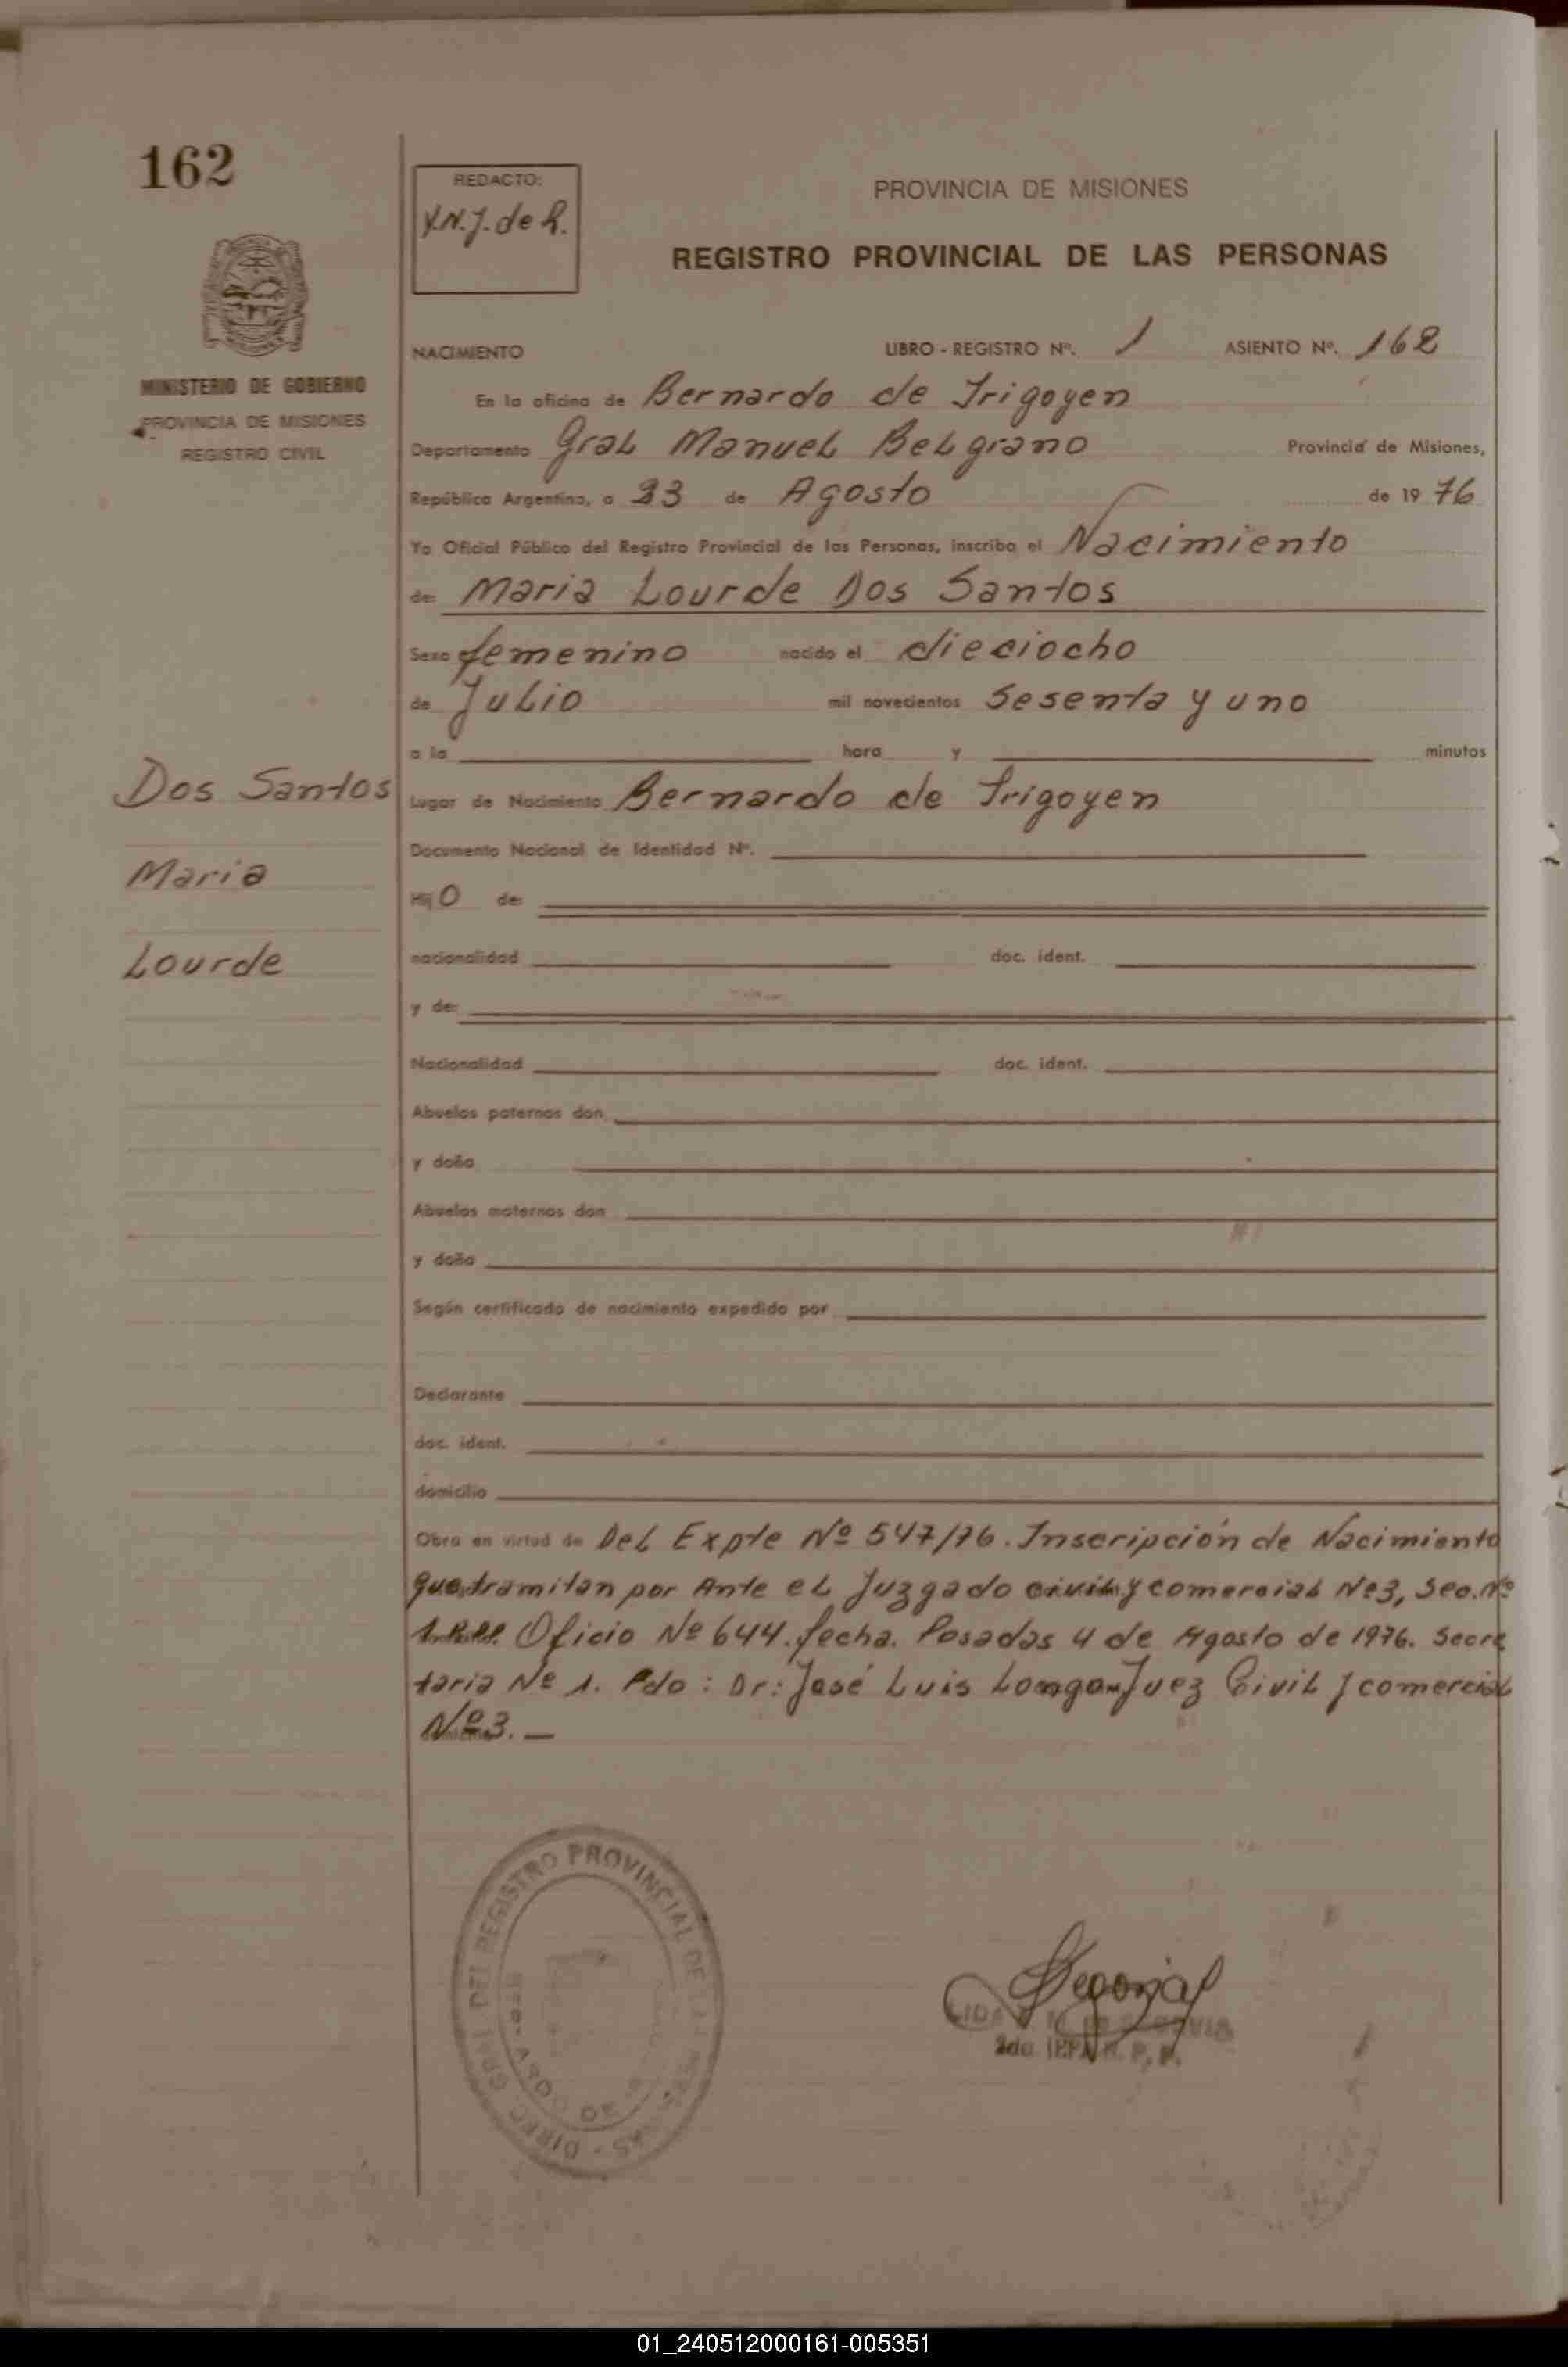 162
REDACTO:
Y.N.J. de R.
PROVINCIA DE MISIONES
REGISTRO PROVINCIAL DE LAS PERSONAS
MINISTERIO DE GOBIERNO
PROVINCIA DE MISIONES
REGISTRO CIVIL
NACIMIENTO LIBRO - REGISTRO Nº. 1 ASIENTO Nº. 162
En la oficina de Bernardo de Irigoyen
Departamento Gral Manuel Belgrano Provincia de Misiones,
República Argentina, a 23 de Agosto de 19 76
Yo Oficial Público del Registro Provincial de las Personas, inscribo el Nacimiento
de: Maria Lourde Dos Santos
Sexo femenino nacido el dieciocho
de Julio mil novecientos sesenta y uno
a la hora y minutos
Dos Santos
Maria
Lourde
Lugar de Nacimiento Bernardo de Irigoyen
Documento Nacional de Identidad Nº.
Hij O de:
nacionalidad doc. ident.
y de:
Nacionalidad doc. ident.
Abuelos paternos don
y doña
Abuelos maternos don
y doña
Según certificado de nacimiento expedido por
Declarante
doc. ident.
domicilio
Obra en virtud de Del Expte Nº 547/76. Inscripción de Nacimiento
que tramitan por Ante el Juzgado civil y comercial Nº3, Sec. Nº
1. Oficio Nº 644. fecha. Posadas 4 de Agosto de 1976. Secre
taria Nº 1. Fdo: Dr: José Luis Juez Civil y comercial
Nº3. —
DIREC. GRAL. DEL REGISTRO PROVINCIAL DE LAS PERSONAS
2da JEFA R. P. P.
01_240512000161-005351